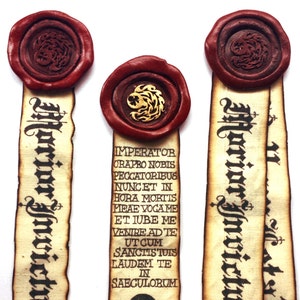 Morior Invictu
IMPERATOR
ORA PRO NOBIS
PECCATORIBUS
NUNC ET IN
HORA MORTIS
MIRAE VOCA ME
ET IUBE ME
VENIRE AD TE
UT CUM
SANCTIS TUIS
LAUDEM TE
IN
SAECULORUM
Morior Invictu